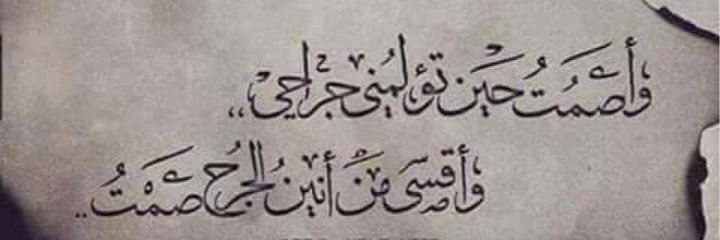 وأَصمُتُ حين تؤلمُني جراحي ،،
وأقسى من أنينُ الجُرح صَمْتُ ..